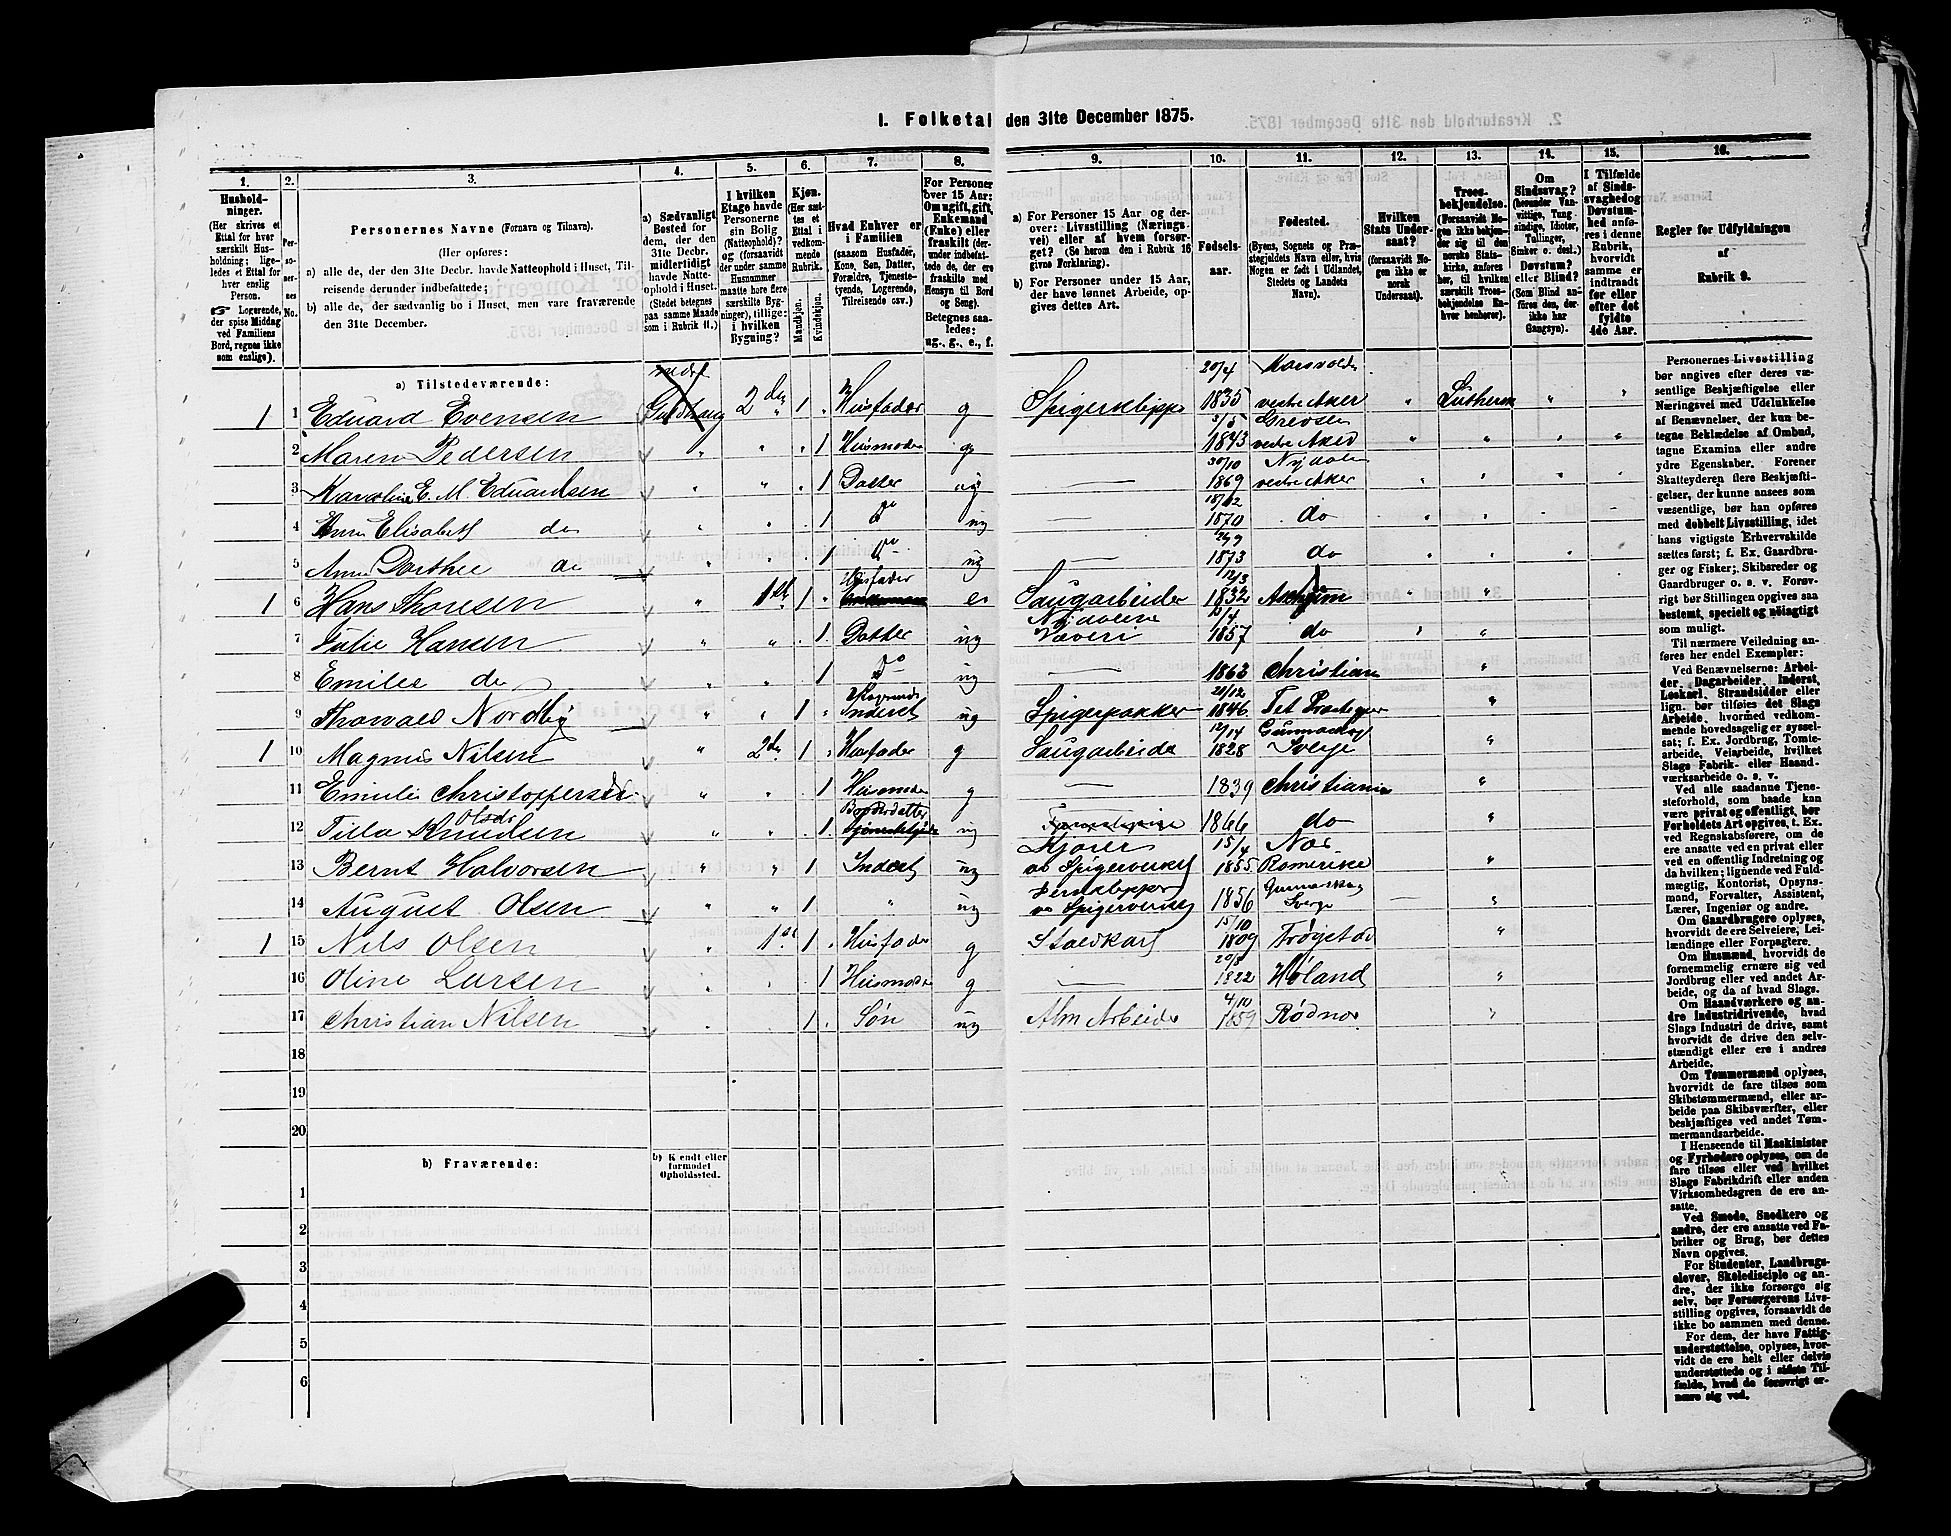 I. Folketal den 31te December 1875.
1. 2. 3. 4. 5. 6. 7. 8. 9. 10. 11. 12. 13. 14. 15. 16.
Hushold-
ninger.
(Her skrives et
Ettal for hver
særskilt Hus-
holdning; lige-
ledes et Ettal for
hver enslig
Person.
☞ Logerende,
der spise Middag
ved Familiens
Bord, regnes ikke
som enslige).
Per-
soner-
nes
No.
Personernes Navne (Fornavn og Tilnavn).
(Her opføres:
a) alle de, der den 31te Decbr. havde Natteophold i Huset, Til-
reisende derunder indbefattede;
b) alle de, der sædvanlig bo i Huset, men vare fraværende
den 31te December.
a) Sædvanligt
Bosted for
dem, der den
31te Decbr.
midlertidigt
havde Natte-
ophold i Huset.
(Stedet betegnes
paa samme Maade
som i Rubrik 11.)
I hvilken
Etage havde
Personerne
sin Bolig
(Natteophold)?
og (forsaavidt
der under samme
Husnummer
maatte høre flere
særskilte Byg-
ninger), tillige:
i hvilken
Bygning?
Kjøn.
(Her sæt-
tes et
Ettal i
vedkom-
mende
Rubrik.
Mandkjøn.
Kvindekjøn.
Hvad Enhver er
i Familien
(saasom Husfader,
Kone, Søn, Datter,
Forældre, Tjeneste-
tyende, Logerende,
Tilreisende osv.)
For Personer
over 15 Aar:
Om ugift, gift,
Enkemand
(Enke) eller
fraskilt (der-
under indbefat-
tede, de, der ere
fraskilte med
Hensyn til Bord
og Seng).
Betegnes saa-
ledes:
ug., g., e., f.
a) For Personer 15 Aar og der-
over: Livsstilling (Nærings-
vei) eller af hvem forsør-
get? (Se herom den i Rubrik 16
givne Forklaring).
b) For Personer under 15 Aar,
der have lønnet Arbeide, op-
gives dettes Art.
Fødsels-
aar.
Fødested.
(Byens, Sognets og Præ-
stegjeldets Navn eller, hvis
Nogen er født i Udlandet,
Stedets og Landets
Navn).
Hvilken
Stats Under-
saat?
(forsaavidt No-
gen ikke er
norsk
Undersaat).
Troes-
bekjendelse.
(Forsaavidt No-
gen ikke bekjen-
der sig til den
norske Stats-
kirke, anføres
her, til hvilken
særskilt Troes-
bekjendelse En-
hver henhører).
Om
Sindssvag?
(herunder Van-
vittige, Tung-
sindige, Idioter,
Tullinger,
Sinker o. desl.)
Døvstum?
eller Blind?
(Som Blind an-
føres den, der
ikke har
Gangsyn).
I Tilfælde
af Sinds-
svaghed og
Døvstum-
hed anfø-
res i denne
Rubrik,
hvorvidt
samme er
indtraadt
før eller
efter det
fyldte
4de Aar.
Regler for Udfyldningen
af
Rubrik 9.
a) Tilstedeværende:
1 1 Eduard Evensen 2den 1 Husfader g Spigerklipper 20/4 1835 vestre Aker Luthersk
2 Maren Pedersen 1 Husmoder g 1843 vestre Aker
3 Karoline E. M. Eduardsen 1 Datter ug 30/10 1869 Nydalen vestre Aker
4 Elisabeth do 1 Do ug 18/12 1870 do
5 Anne Dorthee do 1 Do ug 1873 do
1 6 Hans Thonsen 1ste 1 Husfader e Saugarbeider 12/3 1832
7 Julie Hansen 1 Datter ug Nydalene Væveri 1857 do
8 Emilie do 1 Do ug 1863 Christiania
9 Thorvald Nordby 1 Logerende Inderst ug Spigerpakker 21/12 1846
1 10 Magnus Nilsen 2den 1 Husfader g Saugarbeider 1828 Sverge
11 Emilie Christoffersen 1 Husmoder g 1839 Christiania
12 Tilla Knudsen 1 ug 1866 do
13 Bernt Halvorsen 1 Inderst ug Kjører ved Spigerverket 15/4 1855 Romerike
14 August Olsen 1 ug ved Spigerverket 1856 Sverge
1 15 Nils Olsen 1ste 1 Husfader g Staldkarl 15/10 1809 Trøgstad
16 Oline Larsen 1 Husmoder g 20/8 1822 Høland
17 Christian Nilsen 1 Søn ug Alm Arbeider 4/10 1859 Rødnes
18
19
20
b) Fraværende:
b) Kjendt eller
formodet
Opholdssted.
1
2
3
4
5
6
Personernes Livsstilling
bør angives efter deres væ-
sentlige Beskjæftigelse eller
Næringsvei med Udelukkelse
af Benævnelser, der kun be-
tegne Beklædelse af Ombud,
tagne Examina eller andre
ydre Egenskaber. Forener
Skatteyderen flere Beskjæfti-
gelser, der kunne ansees som
væsentlige, bør han opføres
med dobbelt Livsstilling, idet
hans vigtigste Erhvervskilde
sættes først; f. Ex. Gaardbru-
ger og Fisker; Skibsreder og
Gaardbruger o. s. v. Forøv-
rigt bør Stillingen opgives saa
bestemt, specielt og nøiagtigt
som muligt.
Til nærmere Veiledning an-
føres her endel Exempler:
Ved Benævnelserne: Arbei-
der, Dagarbeider, Inderst,
Løskarl, Strandsidder eller
lign. bør tilføies det Slags
Arbeide, hvormed vedkom-
mende hovedsagelig er syssel-
sat; f. Ex. Jordbrug, Tomte-
arbeide, Veiarbeide, hvilket
Slags Fabrik- eller Haand-
værksarbeide o. s. v.
Ved alle saadanne Tjene-
steforhold, som baade kan
være privat og offentligt, bør
Forholdets Art opgives, f. Ex.
ved Regnskabsførere, om de
ere ansatte ved en privat eller
ved en offentlig Indretning og
da hvilken; lignende ved Fuld-
mægtig, Kontorist, Opsyns-
mand, Forvalter, Assistent,
Lærer, Ingeniør og andre.
Om Gaardbrugere oplyses,
hvorvidt de ere Selveiere, Lei-
lændinge eller Forpagtere.
Om Husmænd, hvorvidt de
fornemmelig ernære sig ved
Jordbrug eller ved andet Ar-
beide, og da af hvad Slags.
Om Haandværkere og an-
dre Industridrivende, hvad
Slags Industri de drive, samt
hvorvidt de drive den selv-
stændigt eller ere i andres
Arbeide.
Om Tømmermænd oplyses,
hvorvidt de fare tilsøs som
Skibstømmermænd, eller ar-
beide paa Skibsværfter, eller
beskjæftiges ved andet Tøm-
mermandsarbeide.
I Henseende til Maskinister
og Fyrbødere oplyses, om de
fare tilsøs eller ved hvilket
Slags Fabrikdrift eller anden
Virksomhedsgren de ere an-
satte.
Ved Smede, Snedkere og
andre, der ere ansatte ved Fa-
briker og Brug, bør dettes
Navn opgives.
For Studenter, Landbrugs-
elever, Skoledisciple og an-
dre, der ikke forsørge sig
selv, bør Forsørgerens Livs-
stilling opgives, forsaavidt de
ikke bo sammen med denne.
For dem, der have Fattig-
understøttelse, oplyses, hvor-
vidt de ere helt eller delvis
understøttede og i sidste Til-
fælde, hvad de forøvrigt er-
nære sig ved.